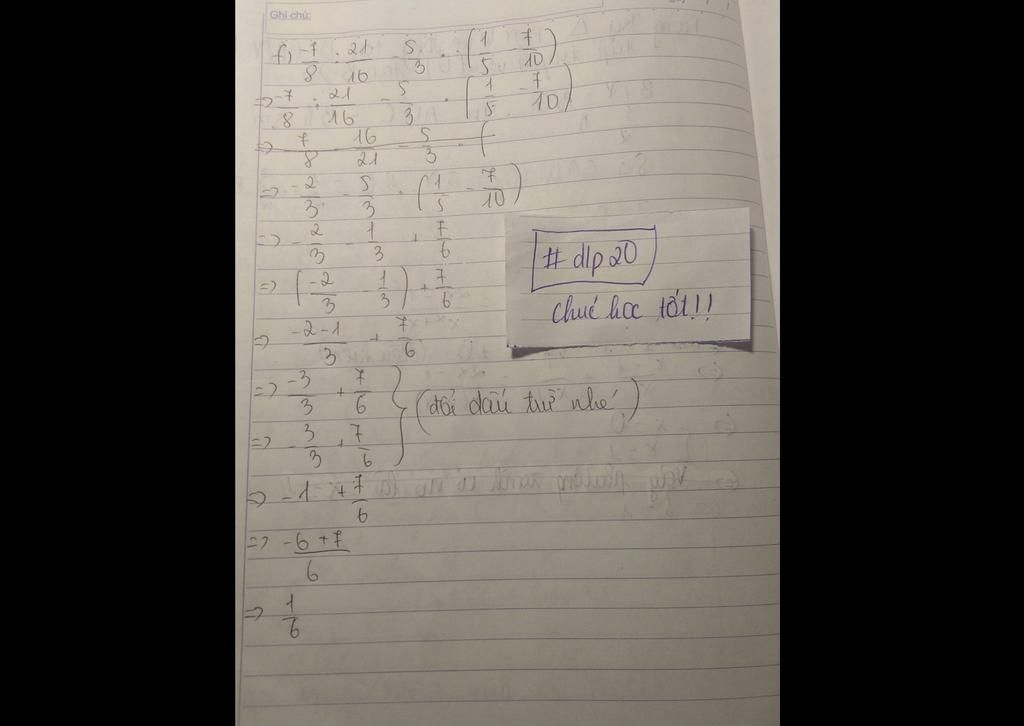 Ghi chú:
f) -7/8 : 21/16 - 5/3 · (1/5 - 7/10)
=> -7/8 : 21/16 - 5/3 · (1/5 - 7/10)
=> 7/8 16/21 - 5/3 · (
=> -2/3 - 5/3 · (1/5 - 7/10)
=> -2/3 - 1/3 + 7/6
=> (-2/3 - 1/3) + 7/6
=> -2-1/3 + 7/6
=> -3/3 + 7/6
=> -3/3 + 7/6
(đổi dấu trừ nhé)
=> -1 + 7/6
=> -6+7/6
=> 1/6
# dlp20
chúc học tốt!!